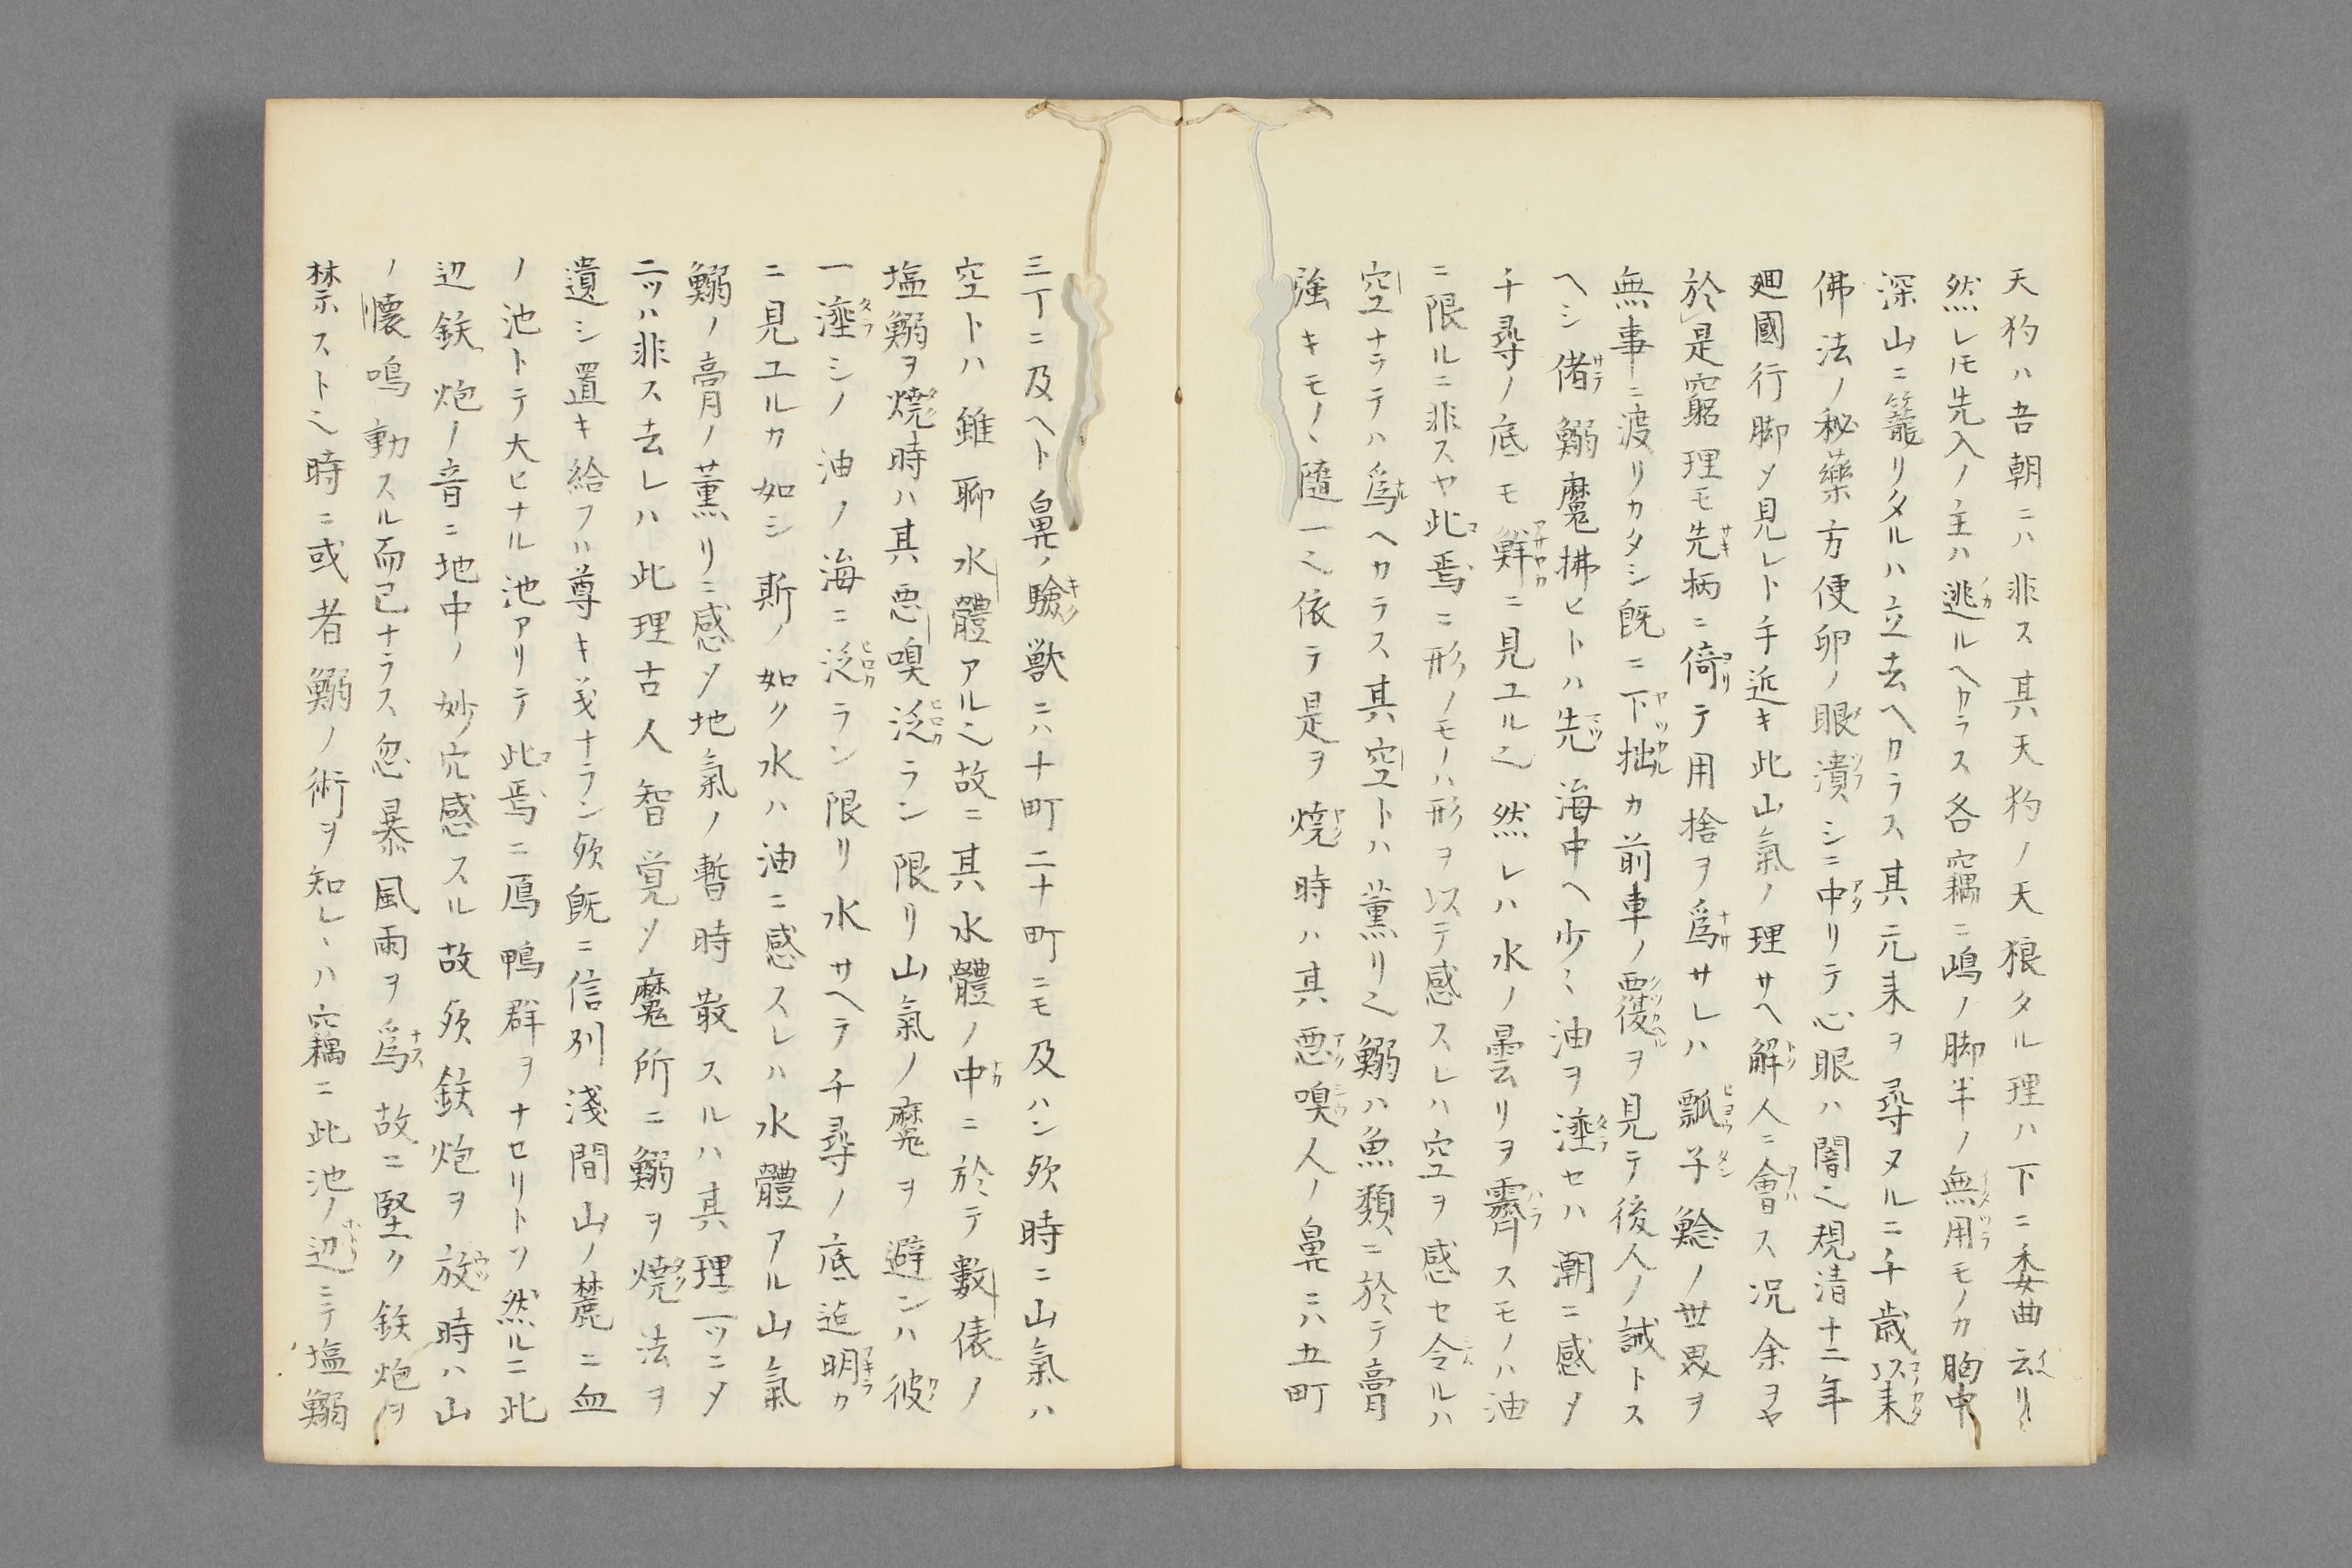 天狗ハ吾朝ニハ非ス其天狗ノ天狼タル理ハ下ニ委曲云リ
然レ𪜈先入ノ主ハ逃ルヘカラス各竊ニ嶋ノ脚半ノ無用モノカ胸中
深山ニ籠リタルハ立去ヘカラス其元来ヲ尋ヌルニ千歳以来
佛法ノ秘藥方便卵ノ眼潰シニ中リテ心眼ハ闇之規清十二年
廻國行脚メ見レト手近キ此山氣ノ理サヘ解人ニ會ス況余ヲヤ
於是窮理モ先柄ニ倚テ用捨ヲ爲サレハ瓢子鯰ノ世界ヲ
無事ニ渡リカタシ既ニ下拙カ前車ノ覆ヲ見テ後人ノ誡トス
ヘシ偖鰯魔拂ヒトハ先海中ヘ少ミ油ヲ塗セハ潮ニ感メ
千尋ノ底モ鮮ニ見ユル之然レハ水ノ曇リヲ霽スモノハ油
ニ限ルニ非スヤ此焉ニ形ノモノハ形ヲ以テ感スレハ空ヲ感セ令ルハ
空ナラテハ爲ヘカラス其空トハ薫リ之鰯ハ魚類ニ於テ膏
強キモノヽ隨一之依テ是ヲ燒時ハ其悪嗅人ノ鼻ニハ五町
三丁ニ及ヘト鼻ノ驗獣ニハ十町二十町ニモ及ハン欤時ニ山氣ハ
空トハ雖聊水體アル之故ニ其水體ノ中ニ於テ數俵ノ
塩鰯ヲ燒時ハ其悪嗅泛ラン限リ山氣ノ魔ヲ避ンハ彼
一塗シノ油ノ海ニ泛ラン限リ水サヘテ千尋ノ底迠明カ
ニ見ユルカ如シ斯ノ如ク水ハ油ニ感スレハ水體アル山氣
鰯ノ膏ノ薫リニ感メ地氣ノ暫時散スルハ其理一ツニメ
二ツハ非ス去レハ此理古人智覚ソ魔所ニ鰯ヲ燒法ヲ
遺シ置キ給フハ尊キ義ナラン欤既ニ信刕淺間山ノ麓ニ血
ノ池トテ大ヒナル池アリテ此焉ニ鴈鴨群ヲナセリトソ然ルニ此
辺鉄炮ノ音ニ地中ノ妙穴感スル故欤鉄炮ヲ放時ハ山
ノ懷鳴動スル而已ナラス忽暴風雨ヲ爲故ニ堅ク鉄炮ヲ
禁スト之時ニ或者鰯ノ術ヲ知レヽハ竊ニ此池ノ辺ニテ塩鰯